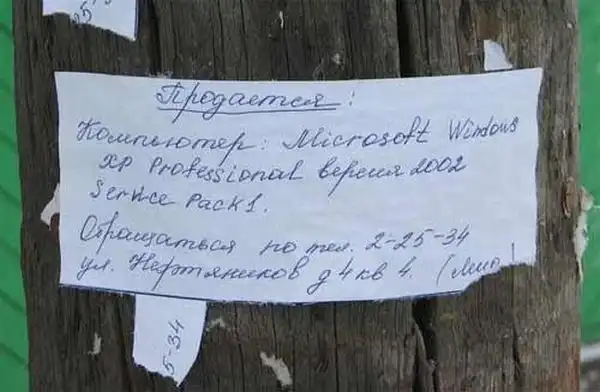 25-3
Продается:
Компьютер: Microsoft Windows
XP Professional версия 2002
Service Pack 1.
Обращаться по тел. 2-25-34
ул. Нефтяников д 4 кв 4.
5-34